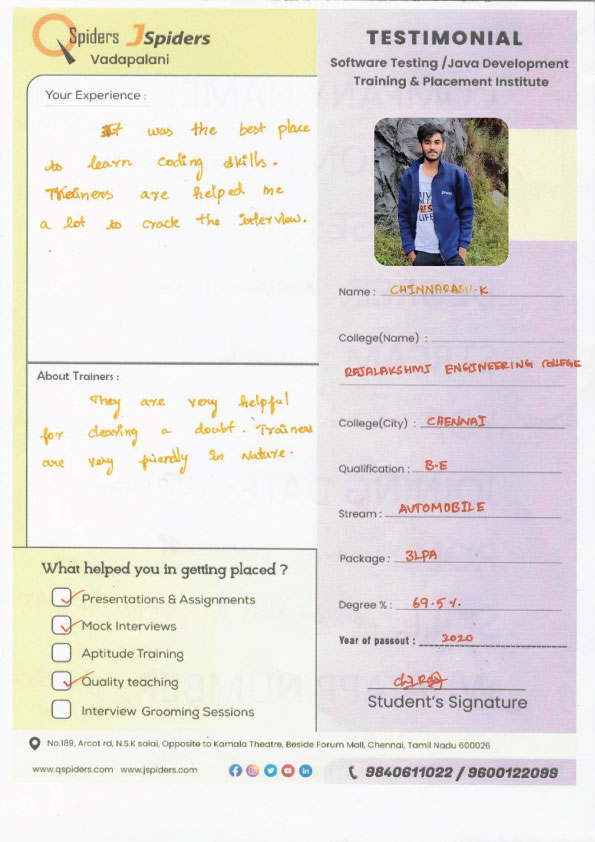 QSpiders JSpiders
Vadapalani
Your Experience :
It was the best place
to learn coding skills.
Trainers are helped me
a lot to crack the interview.
About Trainers :
They are very helpful
for clearing a doubt. Trainers
are very friendly in nature.
What helped you in getting placed ?
Presentations & Assignments
Mock Interviews
Aptitude Training
Quality teaching
Interview Grooming Sessions
TESTIMONIAL
Software Testing /Java Development
Training & Placement Institute
Name : CHINNARASU-K
College(Name) :
RAJALAKSHMI ENGINEERING COLLEGE
College(City) : CHENNAI
Qualification : B.E
Stream : AUTOMOBILE
Package : 3LPA
Degree % : 69.5%.
Year of passout : 2020
Student's Signature
No.189, Arcot rd, N.S.K salai, Opposite to Kamala Theatre, Beside Forum Mall, Chennai, Tamil Nadu 600026
www.qspiders.com www.jspiders.com
9840611022 / 9600122099